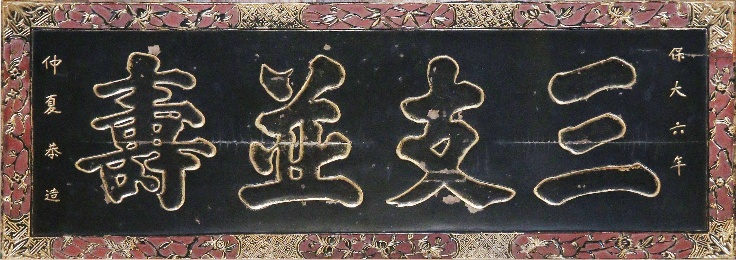 保大六年
三支並壽
仲夏恭造